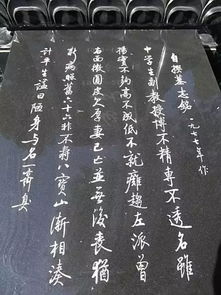 自撰墓志銘 一九七七年作
中學生副教授博不精專不透名雖
揚實不夠高不成低不就癱趨左派曾
右面微圓皮欠厚妻已亡並無後喪猶
新病照舊六十六非不壽八寶山漸相湊
計平生謚曰陋身与名一齊臭